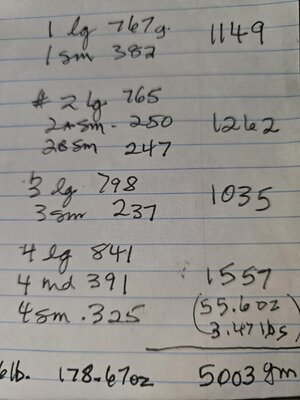 1 lg 767g. 1149
1 sm 382
# 2 lg 765
2A sm. 250 1262
2B sm 247
3 lg 798 1035
3 sm 237
4 lg 841
4 md 391 1557
4 sm .325 (55.6oz
3.47 lbs)
6lb. 178.67oz 5003gm